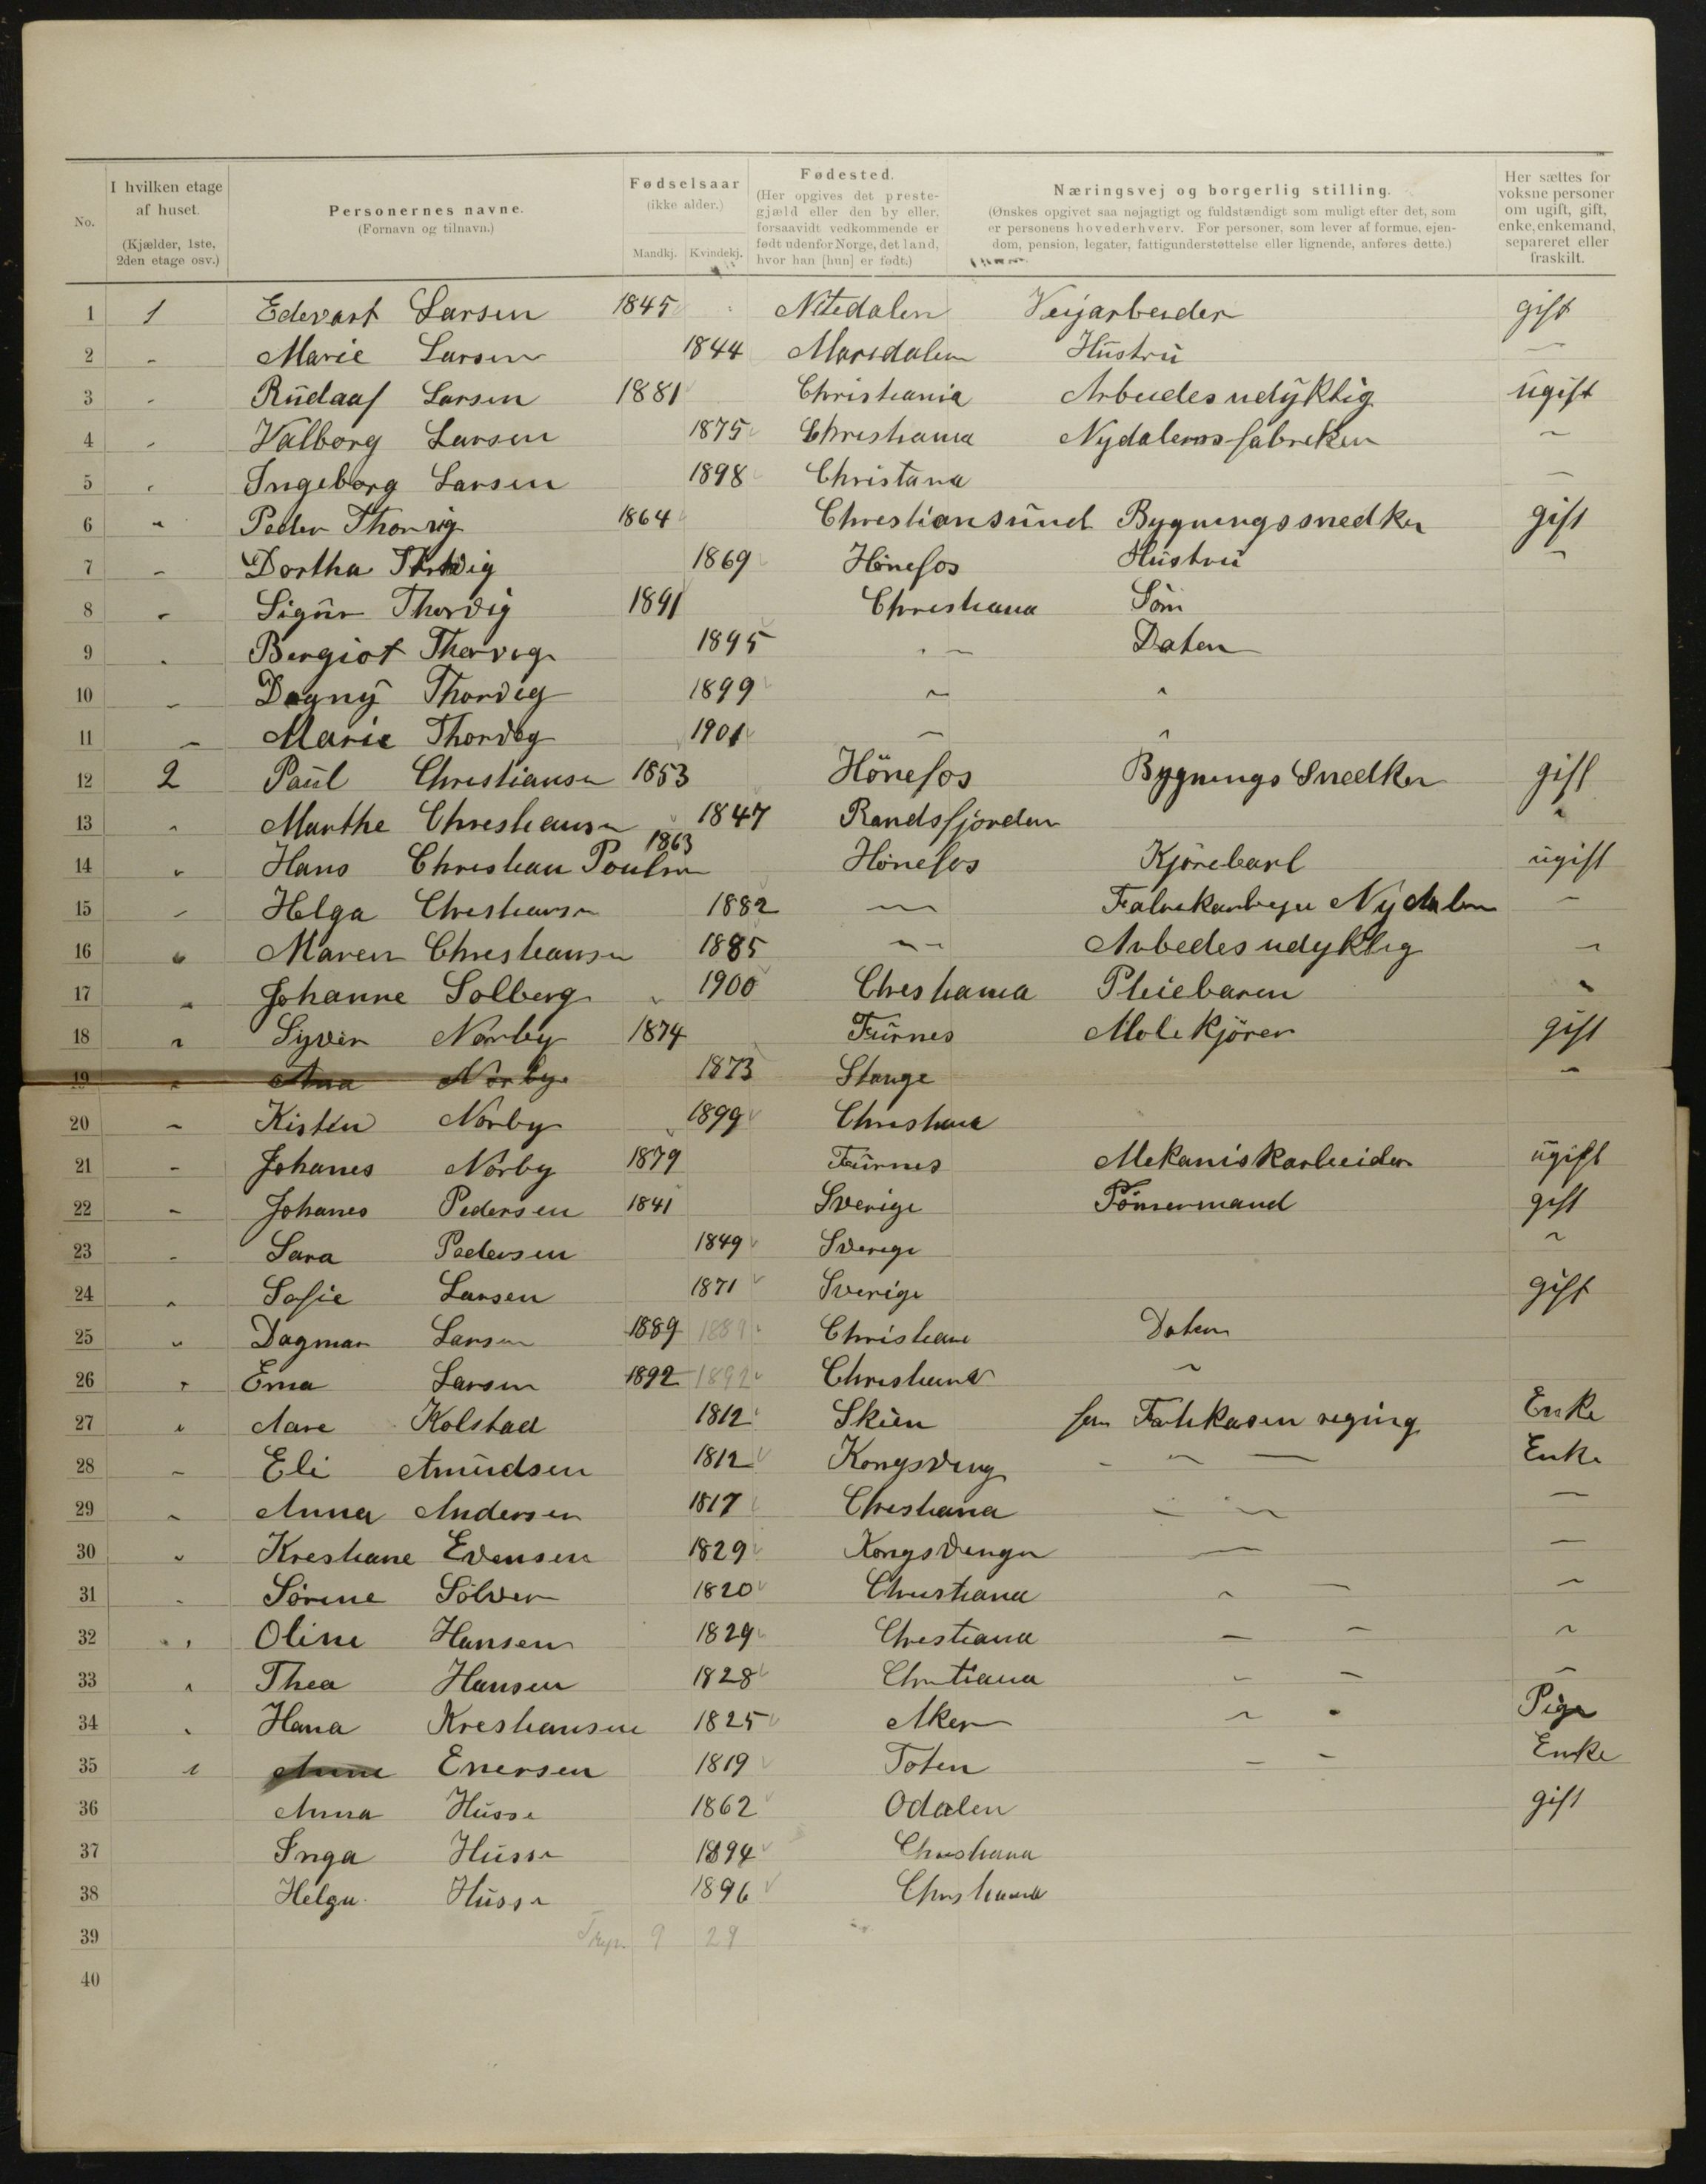 No.
I hvilken etage af huset.
(Kjælder, 1ste, 2den etage osv.)
Personernes navne.
(Fornavn og tilnavn.)
Fødselsaar
(ikke alder.)
Mandkj. Kvindekj.
Fødested.
(Her opgives det prestegjæld eller den by eller, forsaavidt vedkommende er født udenfor Norge, det land, hvor han [hun] er født.)
Næringsvej og borgerlig stilling.
(Ønskes opgivet saa nøjagtigt og fuldstændigt som muligt efter det, som er personens hovederhverv. For personer, som lever af formue, ejendom, pension, legater, fattigunderstøttelse eller lignende, anføres dette.)
Her sættes for voksne personer om ugift, gift, enke, enkemand, separeret eller fraskilt.
1 1 Edevart Larsen 1845 Nitedalen Veijarbeider gift
2 - Marie Larsen 1844 Maridalen Hustru -
3 - Rudaaf Larsen 1881 Christiania Arbeidesudyktig ugift
4 - Valborg Larsen 1875 Christiania Nydalens fabriken -
5 - Ingeborg Larsen 1898 Christana -
6 - Peder Thorvig 1864 Christiansund Bygningssnedker gift
7 - Dortha Thorvig 1869 Hönefos Hustru -
8 - Sigur Thorvig 1891 Christiana Sön
9 - Bergiot Thorvig 1895 - Daten
10 - Dagny Thorvig 1899 - -
11 - Marie Thorvig 1901 - -
12 2 Paul Christiansen 1853 Hönefos Bygnings Snedker gift
13 - Marthe Christiansen 1847 Randsfjorden -
14 - Hans Christian Poulsen 1863 Hönefos Kjörekarl ugift
15 - Helga Christiansen 1882 - Nydalen -
16 - Maren Christiansen 1885 - Arbedesudyktig -
17 - Johanne Solberg 1900 Christiania Pleiebaren -
18 - Syver Nörby 1874 Furnes Mölekjörer gift
19 - Ana Nörby 1873 Stange -
20 - Kisten Nörby 1899 Christiana
21 - Johanes Nörby 1879 Furnes Mekaniskarbeider ugift
22 - Johanes Pedersen 1841 Sverige Tömermand gift
23 - Sara Pedersen 1849 Sverige -
24 - Sofie Larsen 1871 Sverige gift
25 - Dagmar Larsen 1889 1889 Christiana Daten
26 - Ema Larsen 1892 1892 Christiana -
27 - Aare Kolstad 1812 Skien Enke
28 - Eli Amudsen 1812 Kongsving - - - Enke
29 - Anna Andersen 1817 Christiana - - -
30 - Krestiane Evensen 1829 Kongsvinger - -
31 - Sörine Sölver 1820 Christiana - - -
32 - Oline Hansen 1829 Christiana - - -
33 - Thea Hansen 1828 Christiana - - -
34 - Hana Krestiansen 1825 Aker - - Pige
35 - Anne Enersen 1819 Toten - - Enke
36 Anna Husse 1862 Odalen gift
37 Inga Husse 1894 Christiana
38 Helga Husse 1896 Christiania
39 9 29
40